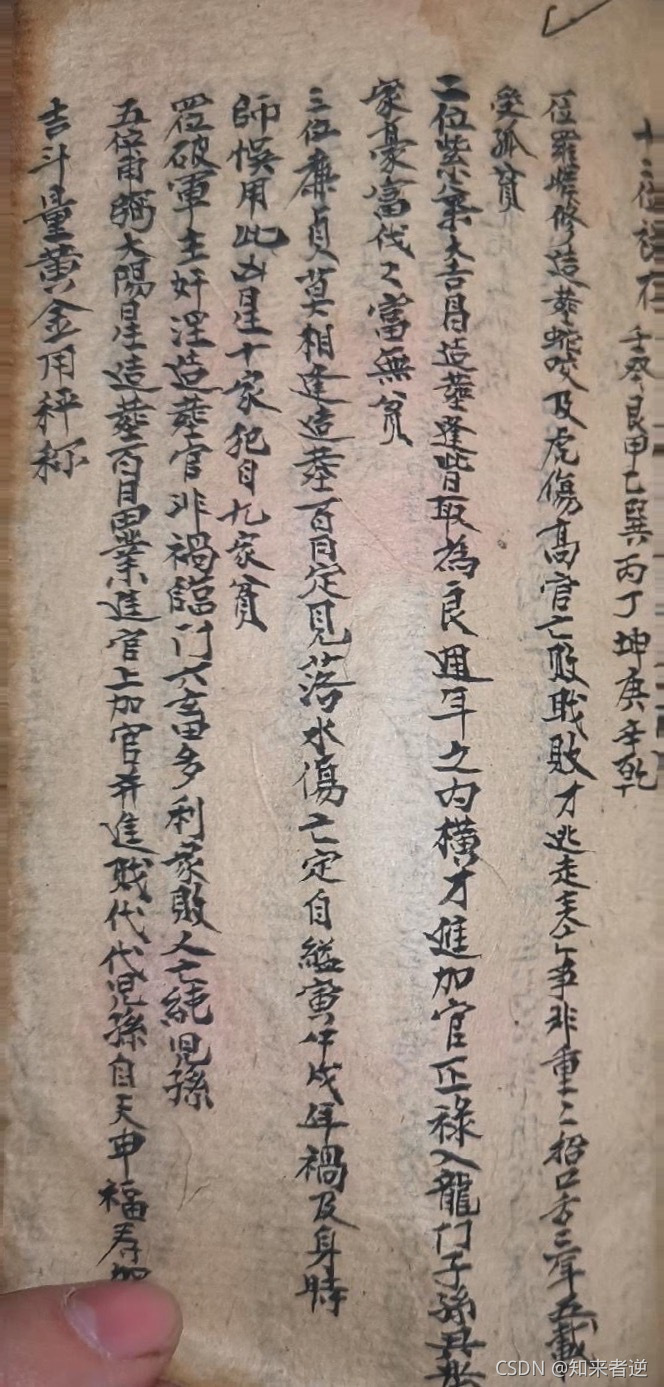 十二位
壬癸艮甲乙巽丙丁坤庚辛乾
位羅㬋修造葬蛇咬及虎傷高官亡敗戰敗才逃走事非重二招口舌三年五載
受孤貧
二位紫氣大吉昌造葬逢皆取為良週年之内横才進加官正禄入龍门子孫
家豪富代二富無貧
三位廉貞莫相逢造葬百日定見落水傷亡定自縊寅午戌年禍及身時
師悮用此凶星十家犯自九家貧
位破軍主奸淫造葬官非禍臨门六畜多利家敗人亡絶児孫
五位大陽星造葬百日田業進官上加官并進代代児孫自天申福寿
吉斗量黄金用秤称
CSDN @知来者逆